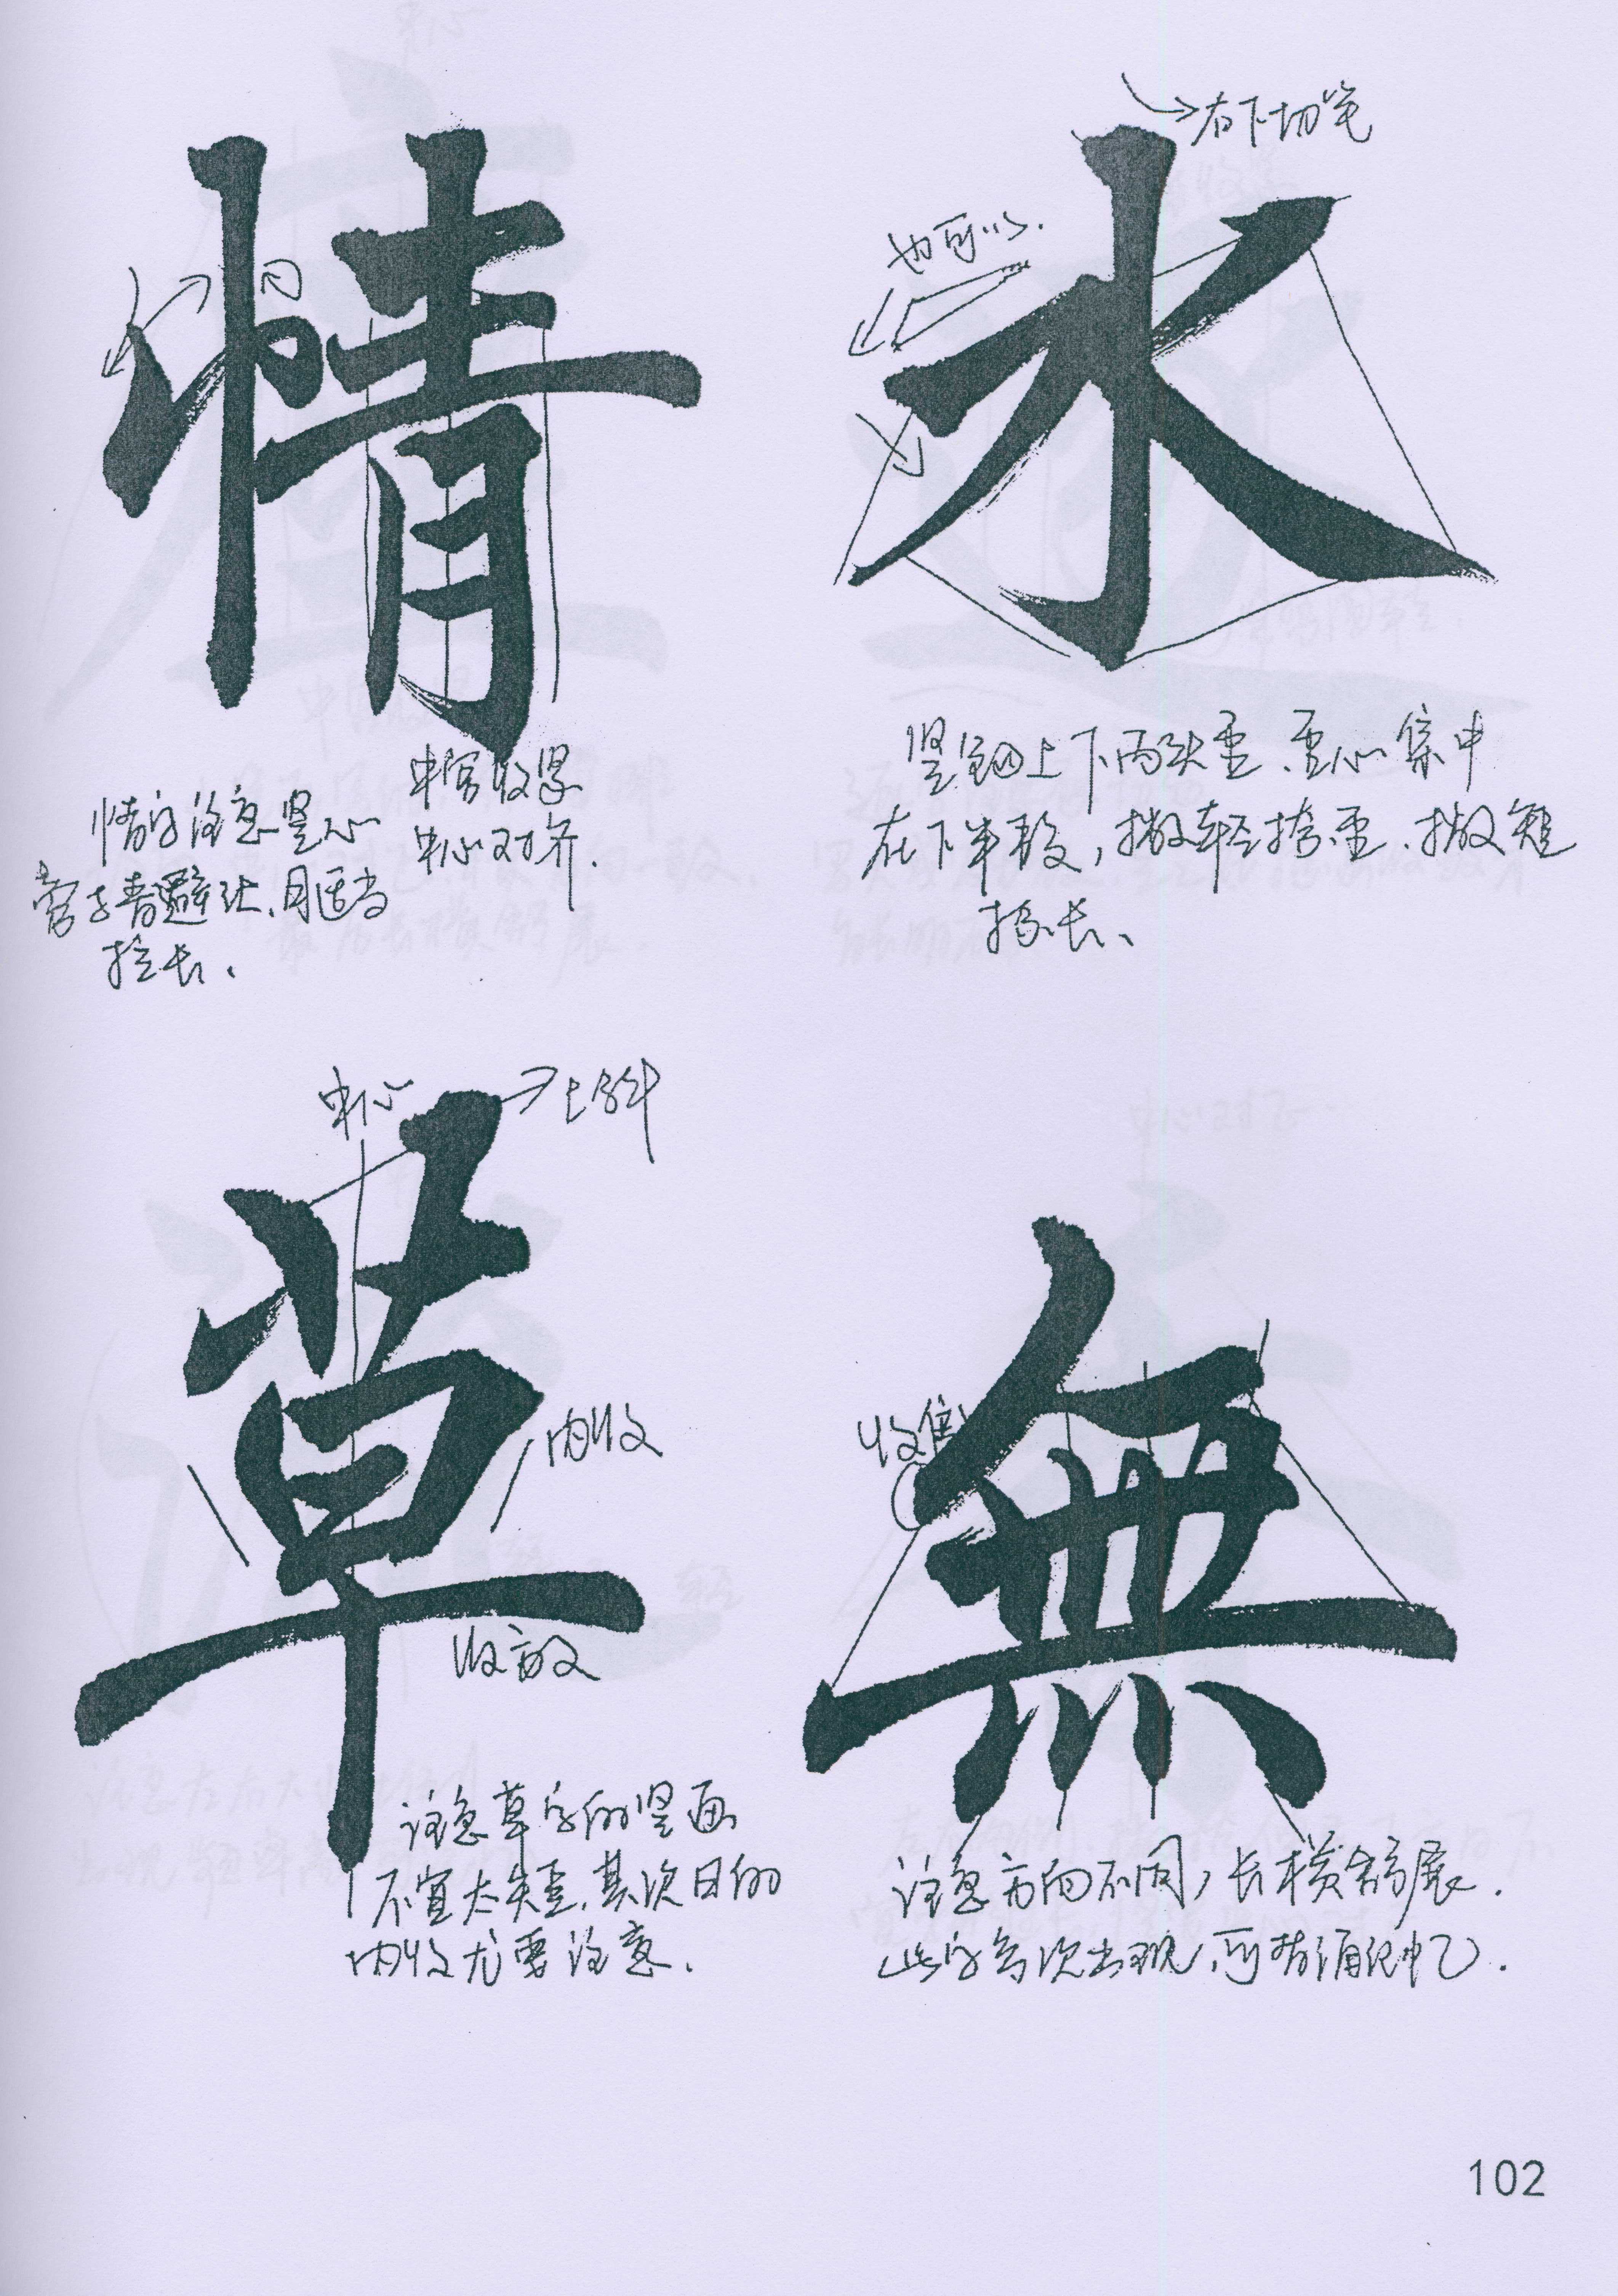 情
水
右下切笔
也可以.
中宫收紧
中心对齐.
情字注意竖心
旁与青避让、月适当
拉长、
竖钩上下两头重、重心集中
在下半段，撇轻捺重、撇短
捺长、
草
中心
上斜
内收
收放
注意草字的竖画
不宜太失重、其次日的
内收尤要注意.
無
收住
注意方向不同，长横舒展.
此字多次出现，可背诵记忆.
102